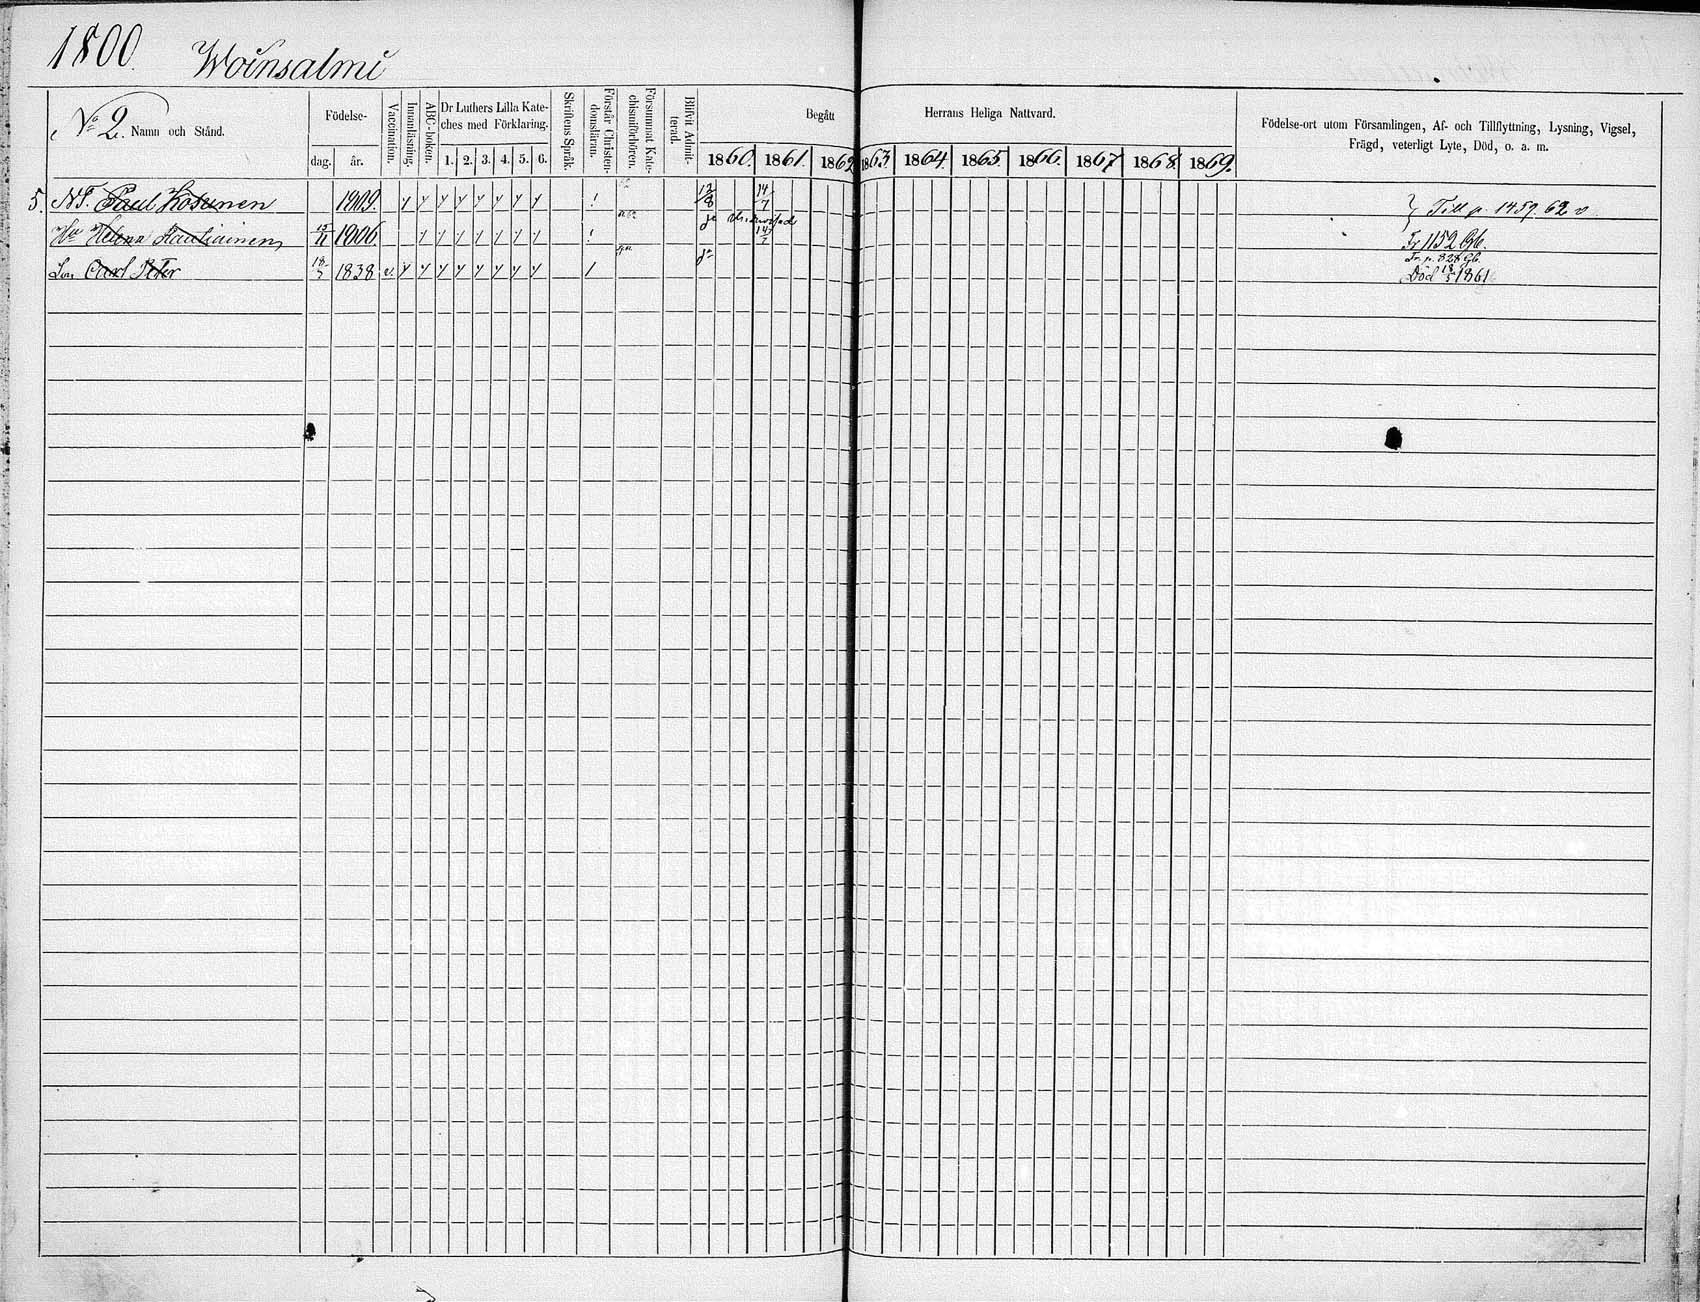 1800. Woinsalmi
No 2. Namn och Stånd.
Födelse-
dag. år.
Vaccination.
Innanläsning.
ABC-boken.
Dr Luthers Lilla Kate-
ches med Förklaring.
1. 2. 3. 4. 5. 6.
Skriftens Språk.
Förstår Christen-
domsläran.
Försummat Kate-
chismiförhören.
Blifvit Admit-
terad.
Begått Herrans Heliga Nattvard.
1860. 1861. 1862 1863 1864. 1865. 1866. 1867 1868. 1869.
Födelse-ort utom Församlingen, Af- och Tillflyttning, Lysning, Vigsel,
Frägd, veterligt Lyte, Död, o. a. m.
5. Paul Kosunen 1809. 12/8 14/7 Till p. 1459. 62
Hu Helena 1806. 14/7 Fr 1152 Gb.
Son Carl Peter 18 1838 v. Fr. p. 328 Gb.
Död 1861